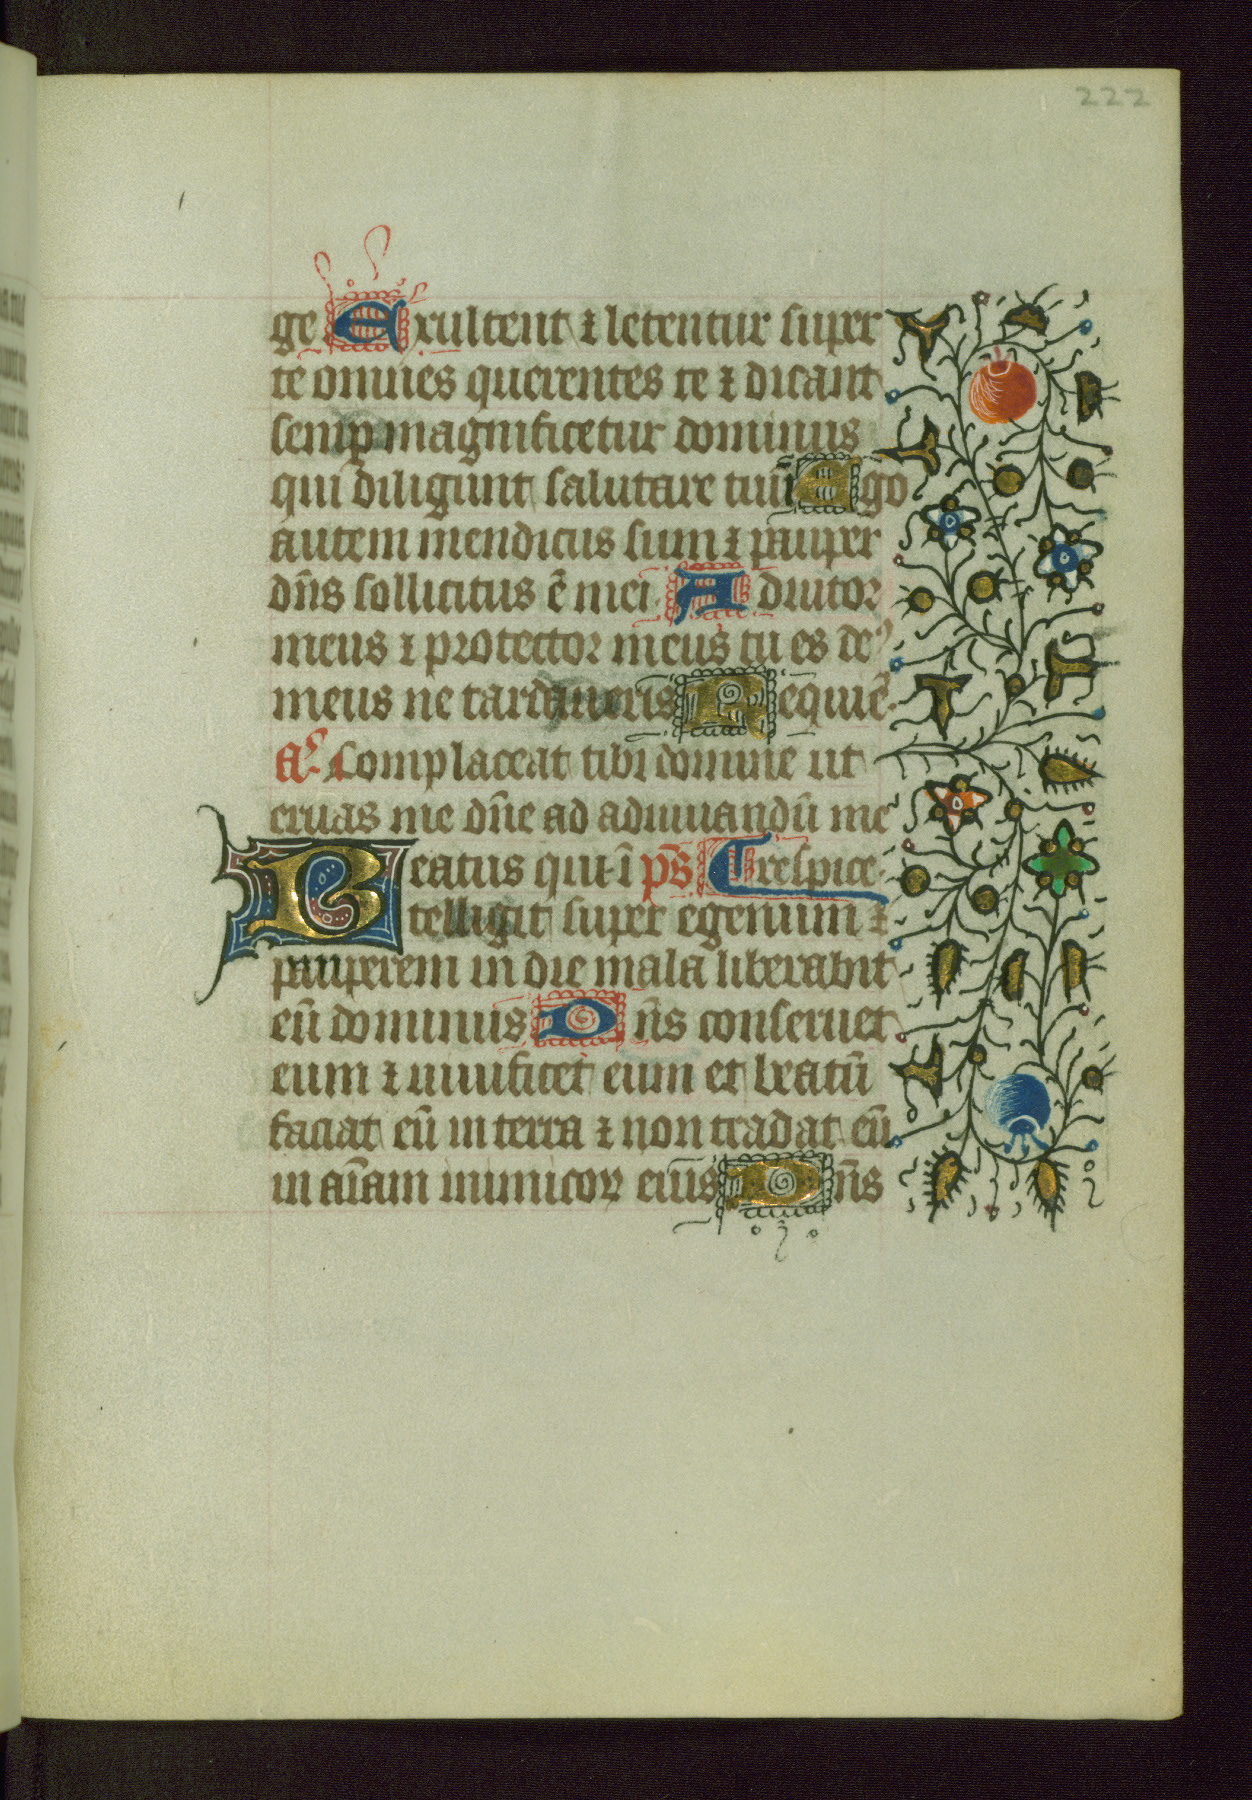 222
ge Exultent ⁊ letentur super
te omnes querentes te ⁊ dicant
semꝑ magnificetur dominus
qui diligunt salutare tuū Ego
autem mendicus sum ⁊ pauper
dn̄s sollicitus ē mei. Adiutor
meus ⁊ protector meus tu es deꝰ
meus ne tardaueris Requiē.
An̄. Complaceat tibi domine ut
eruas me dn̄e ad adiuuandū me
Beatus qui ī p̄s. Et respice.
telligit super egenum ⁊
pauperem in die mala liberabit
eū dominus Dn̄s conseruet
eum ⁊ uiuificet eum et beatū
faciat eū in terra ⁊ non tradat eū
in aīam inimicoꝝ eius Dn̄s